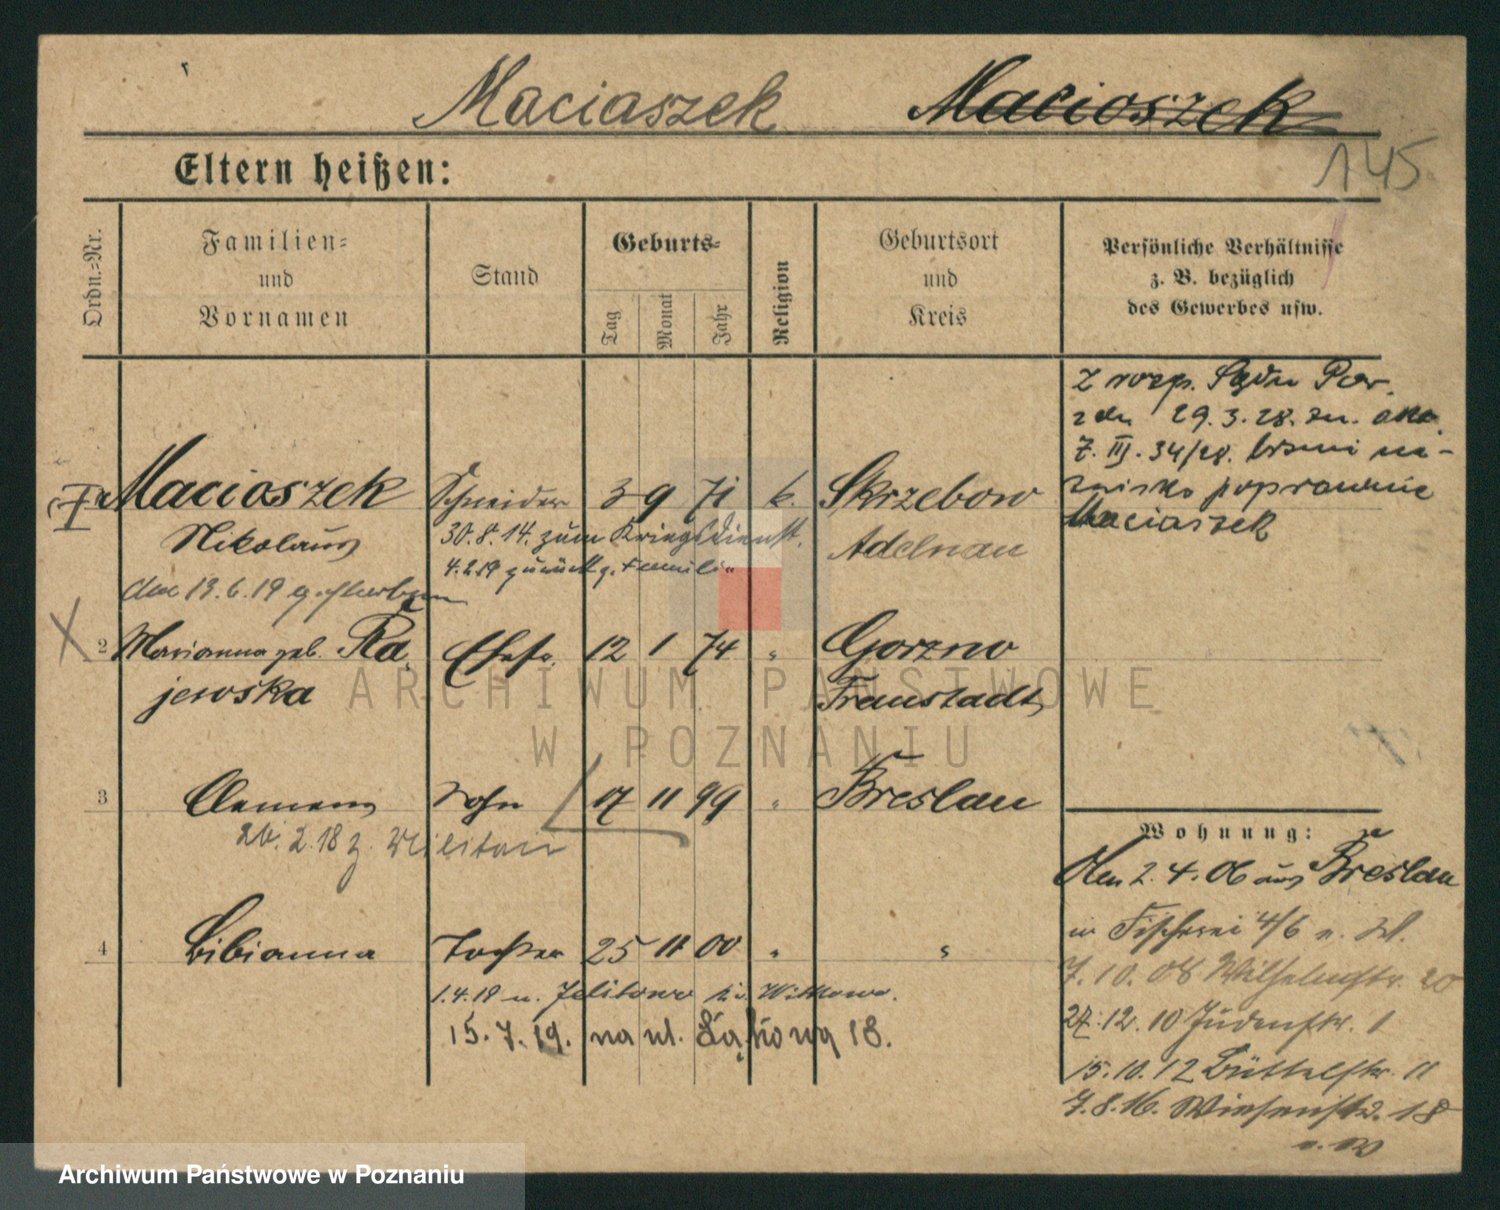 Maciaszek Macioszek
145
Eltern heißen:
Ordn.=Nr.
Familien=
und
Vornamen
Stand
Geburts=
Tag
Monat
Jahr
Religion
Geburtsort
und
Kreis
Persönliche Verhältnisse
z. B. bezüglich
des Gewerbes usw.
Z rozp. Sądu Pow.
29.3.28. zn. akt.
7. III. 34/28. brzmi na-
zwisko poprawnie
Maciaszek
Macioszek Schneider 3 9 71 k. Skrzebow
Nikolaus 30.8.14. zum Kriegsdienst. Adelnau
4.2.19 zurück z. Familie
den 13.6.19 gestorben
2 Marianna geb. Ra Ehefr. 12 1 74 " Gorzno
jewska Fraustadt
3 Clemens Sohn 17 11 99 " Breslau
26.2.18 z. Militär
4 Bibianna Tochter 25 11 00 " "
1.4.18 n. Jelitowo Witkowo.
15.7.19. na ul. Łąkową 18.
Wohnung:
Den 2.4.06 aus Breslau
Fischerei 4/6
7.10.08 Wilhelmstr. 20
27.12.10 Judenstr. 1
15.10.12 Büttelstr. 11
7.8.16. Wiesenstr. 18
ARCHIWUM PAŃSTWOWE
W POZNANIU
Archiwum Państwowe w Poznaniu